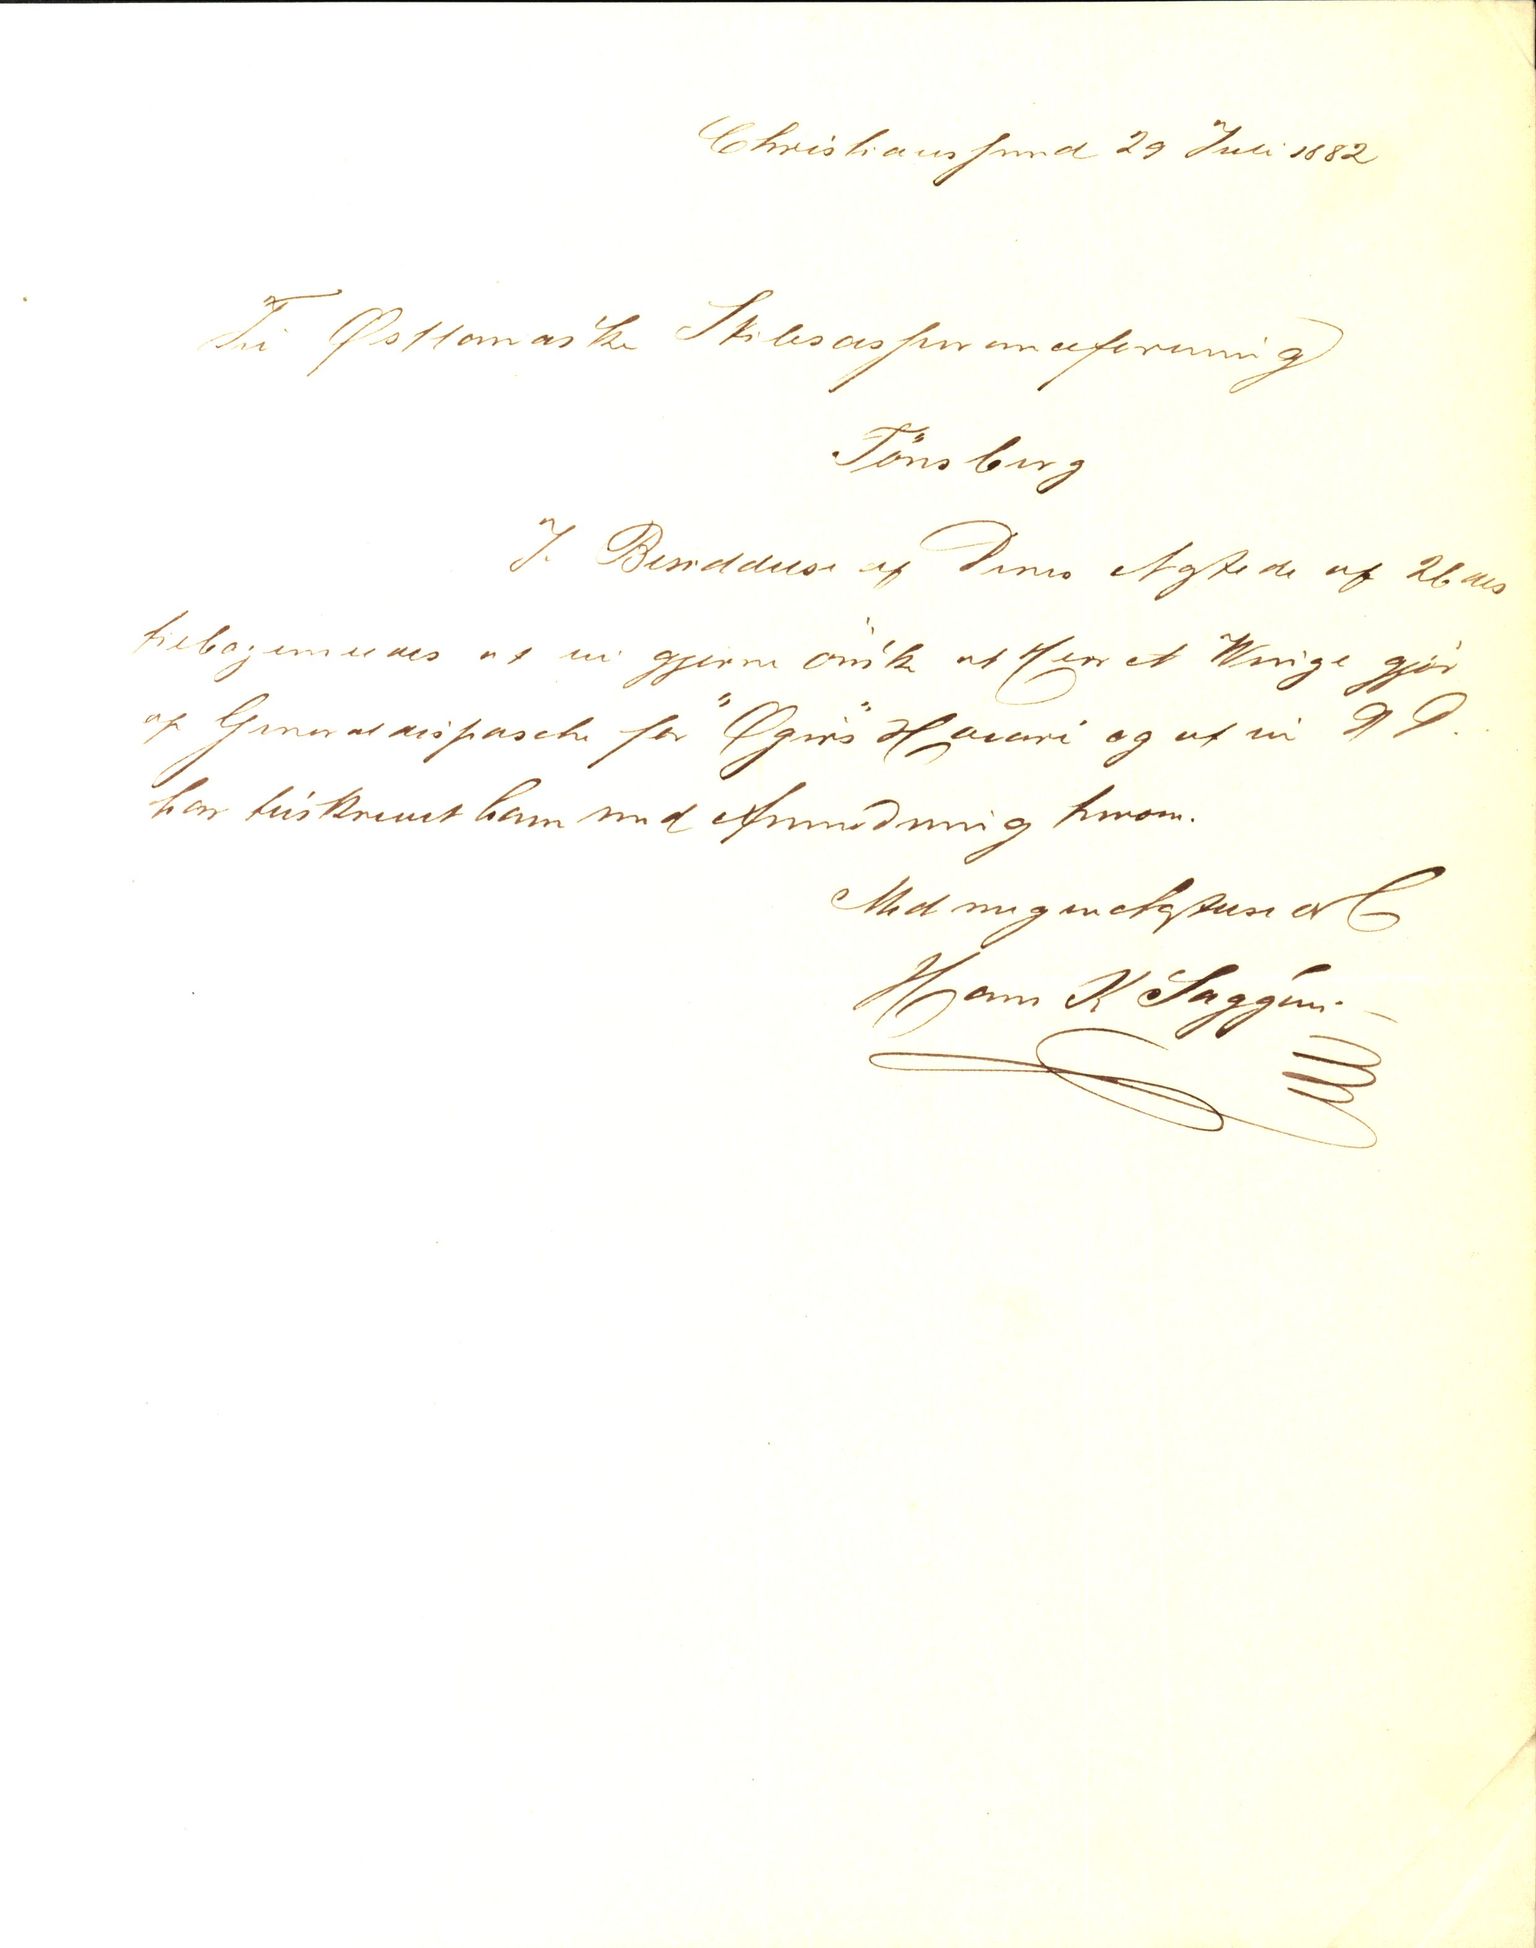 Christianssund 29 Juli 1882
Til Østlandske Skibsassuranceforening
Tönsberg
I Besiddelse af Deres Agtede af 26 des
tilbagemeldes at vi gjerne önske at Herr A Winge gjör
af Generaldispasche for "Øgirs" Havari og at vi D D.
har tilskrevet ham med Anmodning herom.
Med megen Agtelse
Hans K